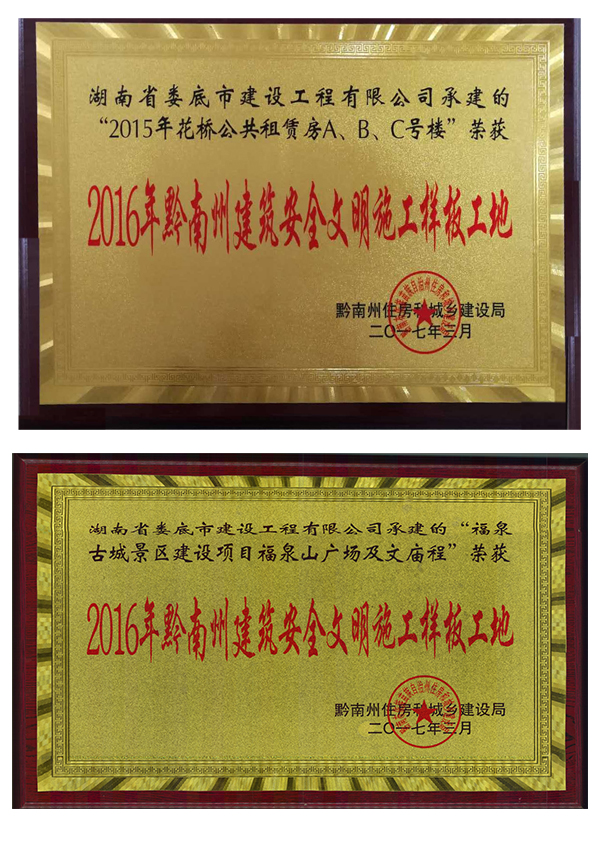 湖南省娄底市建设工程有限公司承建的
“2015年花桥公共租赁房A、B、C号楼”荣获
2016年黔南州建筑安全文明施工样板工地
黔南州住房和城乡建设局
二〇一七年三月
湖南省娄底市建设工程有限公司承建的“福泉
古城景区建设项目福泉山广场及文庙程”荣获
2016年黔南州建筑安全文明施工样板工地
黔南州住房和城乡建设局
二〇一七年二月